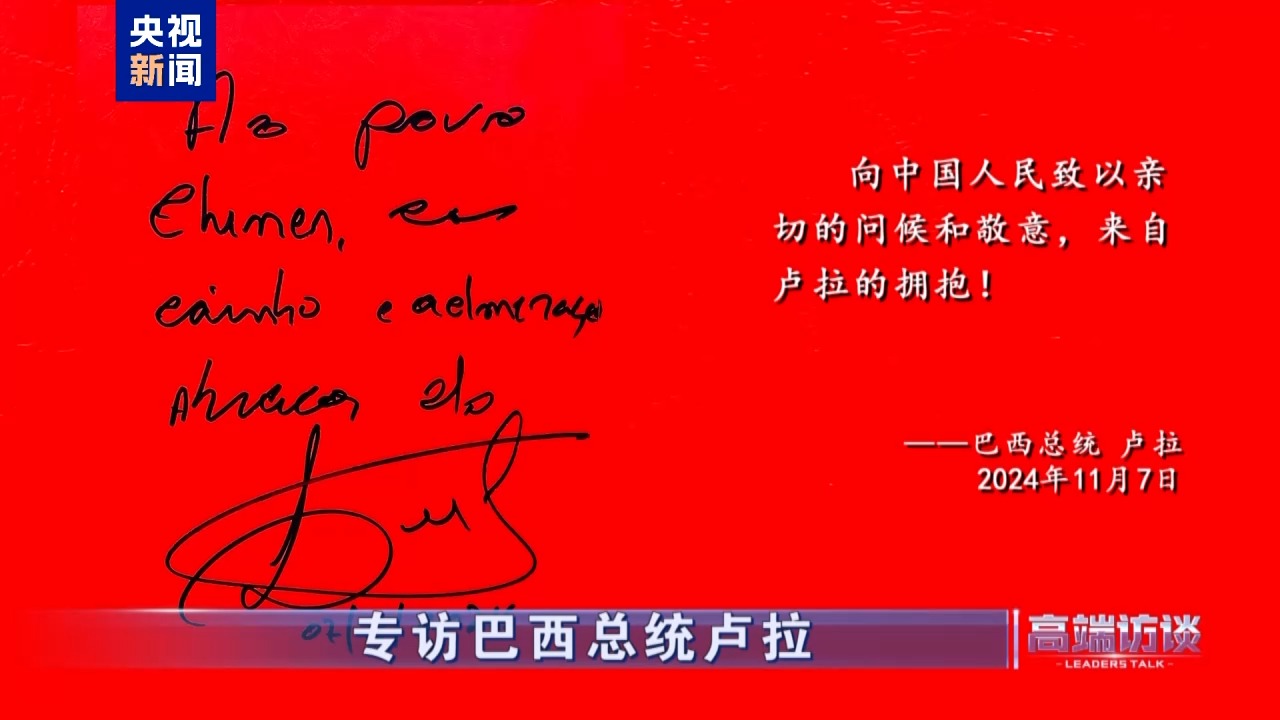 央视
新闻
Ao povo
Chines, com
carinho e admiração
Abraços do
向中国人民致以亲
切的问候和敬意，来自
卢拉的拥抱！
——巴西总统 卢拉
2024年11月7日
专访巴西总统卢拉
高端访谈
-LEADERS TALK-